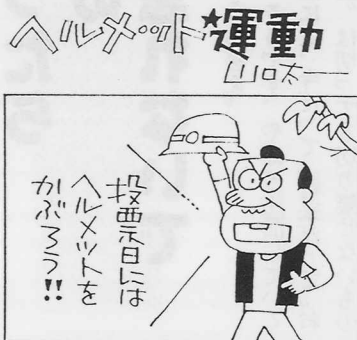 ヘルメット★運動
山口太一
投票日には
ヘルメットを
かぶろう!!